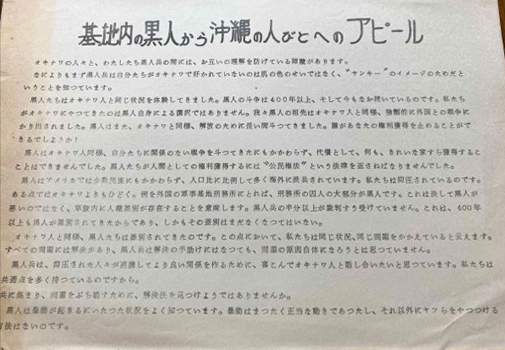 基地内の黒人から沖縄の人びとへのアピール
オキナワの人々と、わたしたち黒人兵の間には、お互いの理解を妨げている障壁があります。
なによりもまず黒人兵は自分たちがオキナワで好かれていないのは肌の色のせいではなく、"ヤンキー"のイメージのためだと
いうことを知っています。
黒人たちはオキナワ人と同じ状況を体験してきました。黒人の斗争は400年以上、そして今もなお続いているのです。私たち
がオキナワにやってきたのは黒人自身による選択ではありません。我々黒人の祖先はオキナワ人と同様、強制的に外国との戦争に
かり出されました。黒人はまた、オキナワと同様、解放のために長い間斗ってきました。誰があなたの権利獲得を止めることがで
きるでしょうか!
黒人はオキナワ人同様、自分たちに関係のない戦争を斗ってきたにもかかわらず、代償として、何も、きれいな家すら獲得する
ことはできませんでした。黒人たちが人間としての権利獲得するには"公民権法"という法律を
黒人はアメリカでは少数民族にもかかわらず、人口比に比例して多く海外に派兵されています。私たちは抑圧されているのです。
ある点ではオキナワよりもひどく。例を外国の軍事基地刑務所にとれば、刑務所の囚人の大部分が黒人です。これは決して黒人が
悪いのではなく、軍隊内に人種差別が存在することを意味します。黒人兵の半分以上が裁判すら受けていません。これは、400年
以上も黒人が差別されてきたからであり、しかもその差別はまだなくなってはいない。
オキナワ人と同様、黒人たちは差別されてきたのです。この点において、私たちは同じ状況、同じ問題をかかえていると云えます。
すべての問題には解決があり、黒人兵は解決の手助けにはなっても、問題の原因自体になろうとは思っていません。
黒人兵は、抑圧された人々が連携してより良い関係を作るために、喜こんでオキナワ人と話し合いたいと思っています。私たちは
共通点を多く持っているのですから。
共に集まり、問題をぶち壊すために、解決法を見つけようではありませんか。
黒人は暴動が起きるにいたった状況をよく知っています。暴動はまったく正当な動きであったし、それ以外にヤツらをやっつける
方法はないのです。